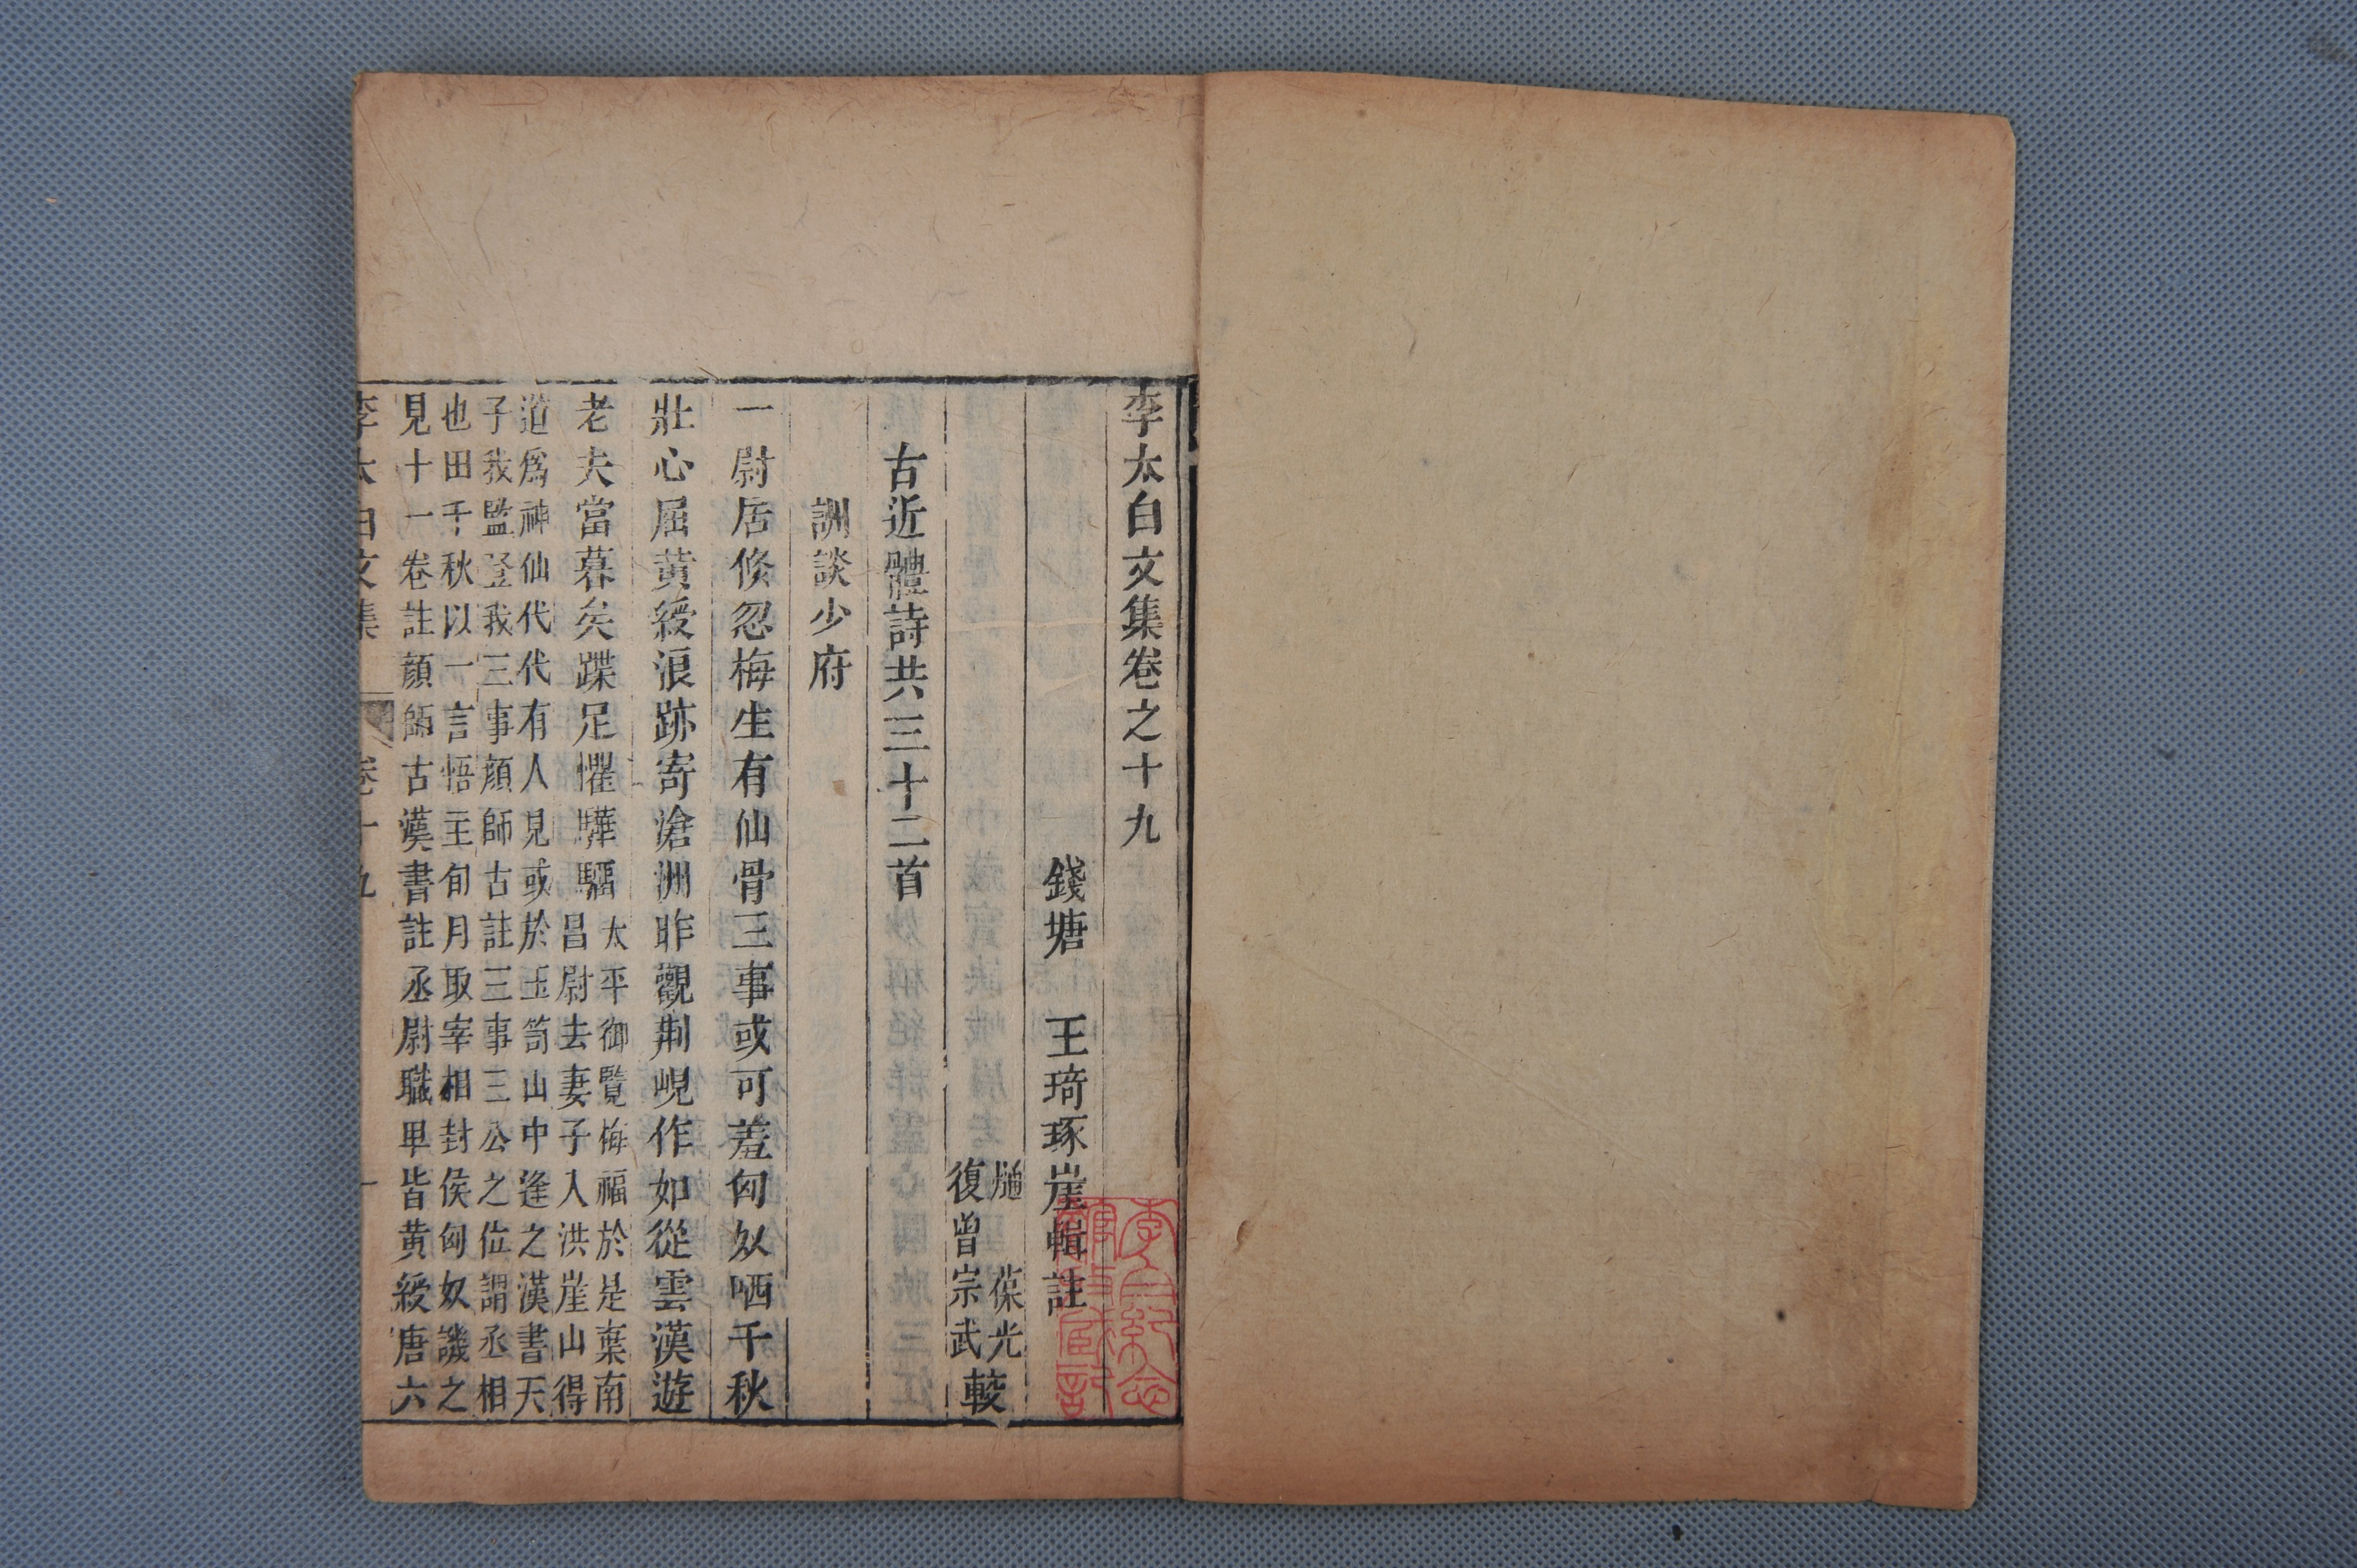 李太白文集卷之十九
錢塘 王琦琢崖輯註
縋 葆光
復曾宗武
較
古近體詩共三十二首
詶談少府
一尉居倏忽梅生有仙骨三事或可羞匈奴哂千秋
壯心屈黃綬浪跡寄滄洲昨觀荆峴作如從雲漢遊
老夫當暮矣蹀足懼驊騮
太平御覽梅福於是棄南
昌尉去妻子入洪崖山得
道為神仙代代有人見或於玉笥山中逢之漢書天
子我監豋我三事顏師古註三事三公之位謂丞相
也田千秋以一言悟主旬月取宰相封侯匈奴譏之
見十一卷註顏師古漢書註丞尉職卑皆黃綬唐六
李太白文集 卷十九 一